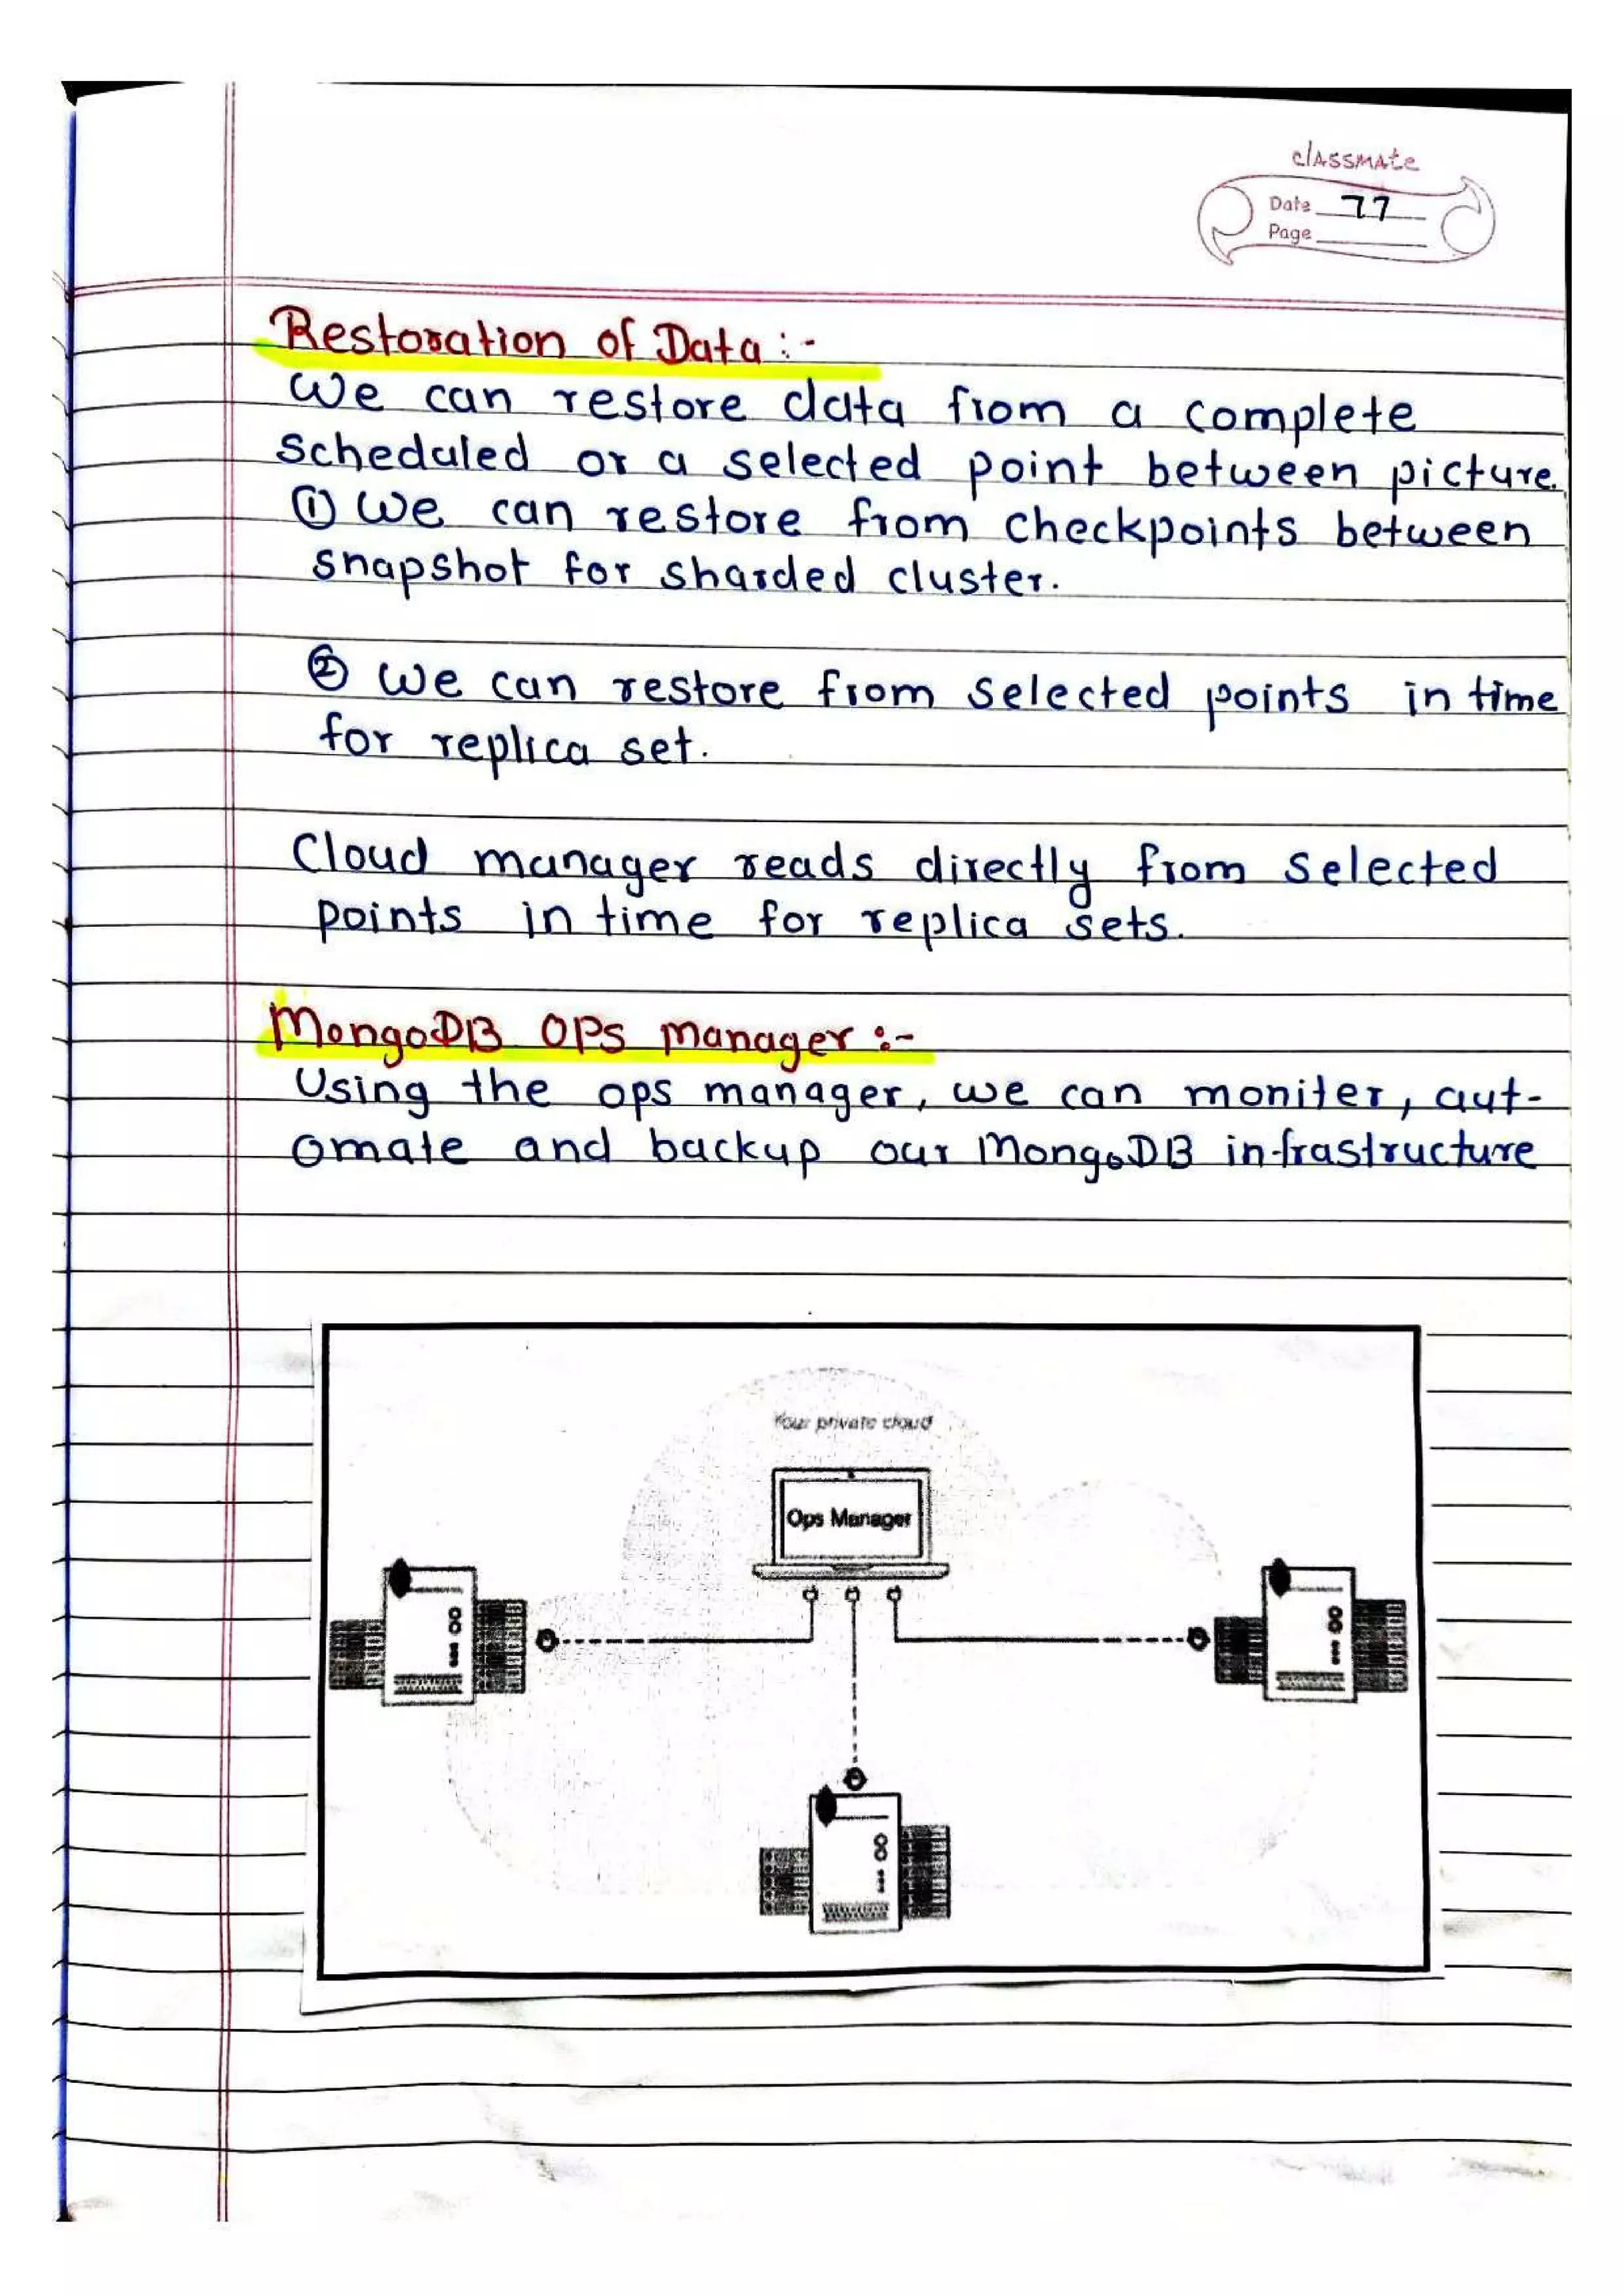 classmate
Date 77
Page
Restoration of Data :-
We can restore data from a complete
scheduled or a selected point between picture.
① We can restore from checkpoints between
snapshot for sharded cluster.
② We can restore from selected points in time
for replica set.
Cloud manager reads directly from selected
points in time for replica sets.
MongoDB OPs Manager :-
Using the ops manager, we can moniter, aut-
omate and backup our MongoDB infrastructure
Your private cloud
Ops Manager